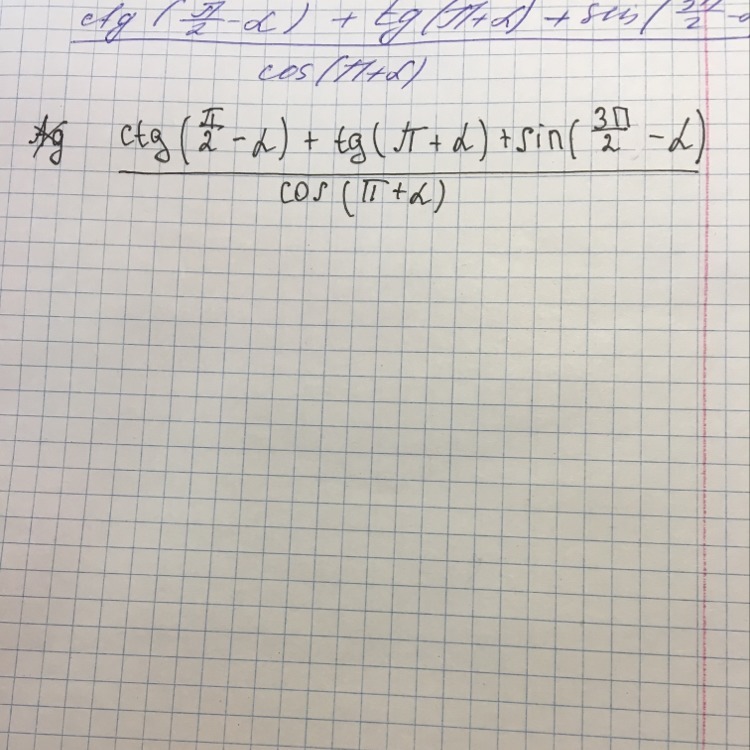 ctg (π/2 - α) + tg (π + α) + sin (3π/2 - α
cos (π + α)
ctg (π/2 - α) + tg (π + α) + sin (3π/2 - α)
cos (π + α)